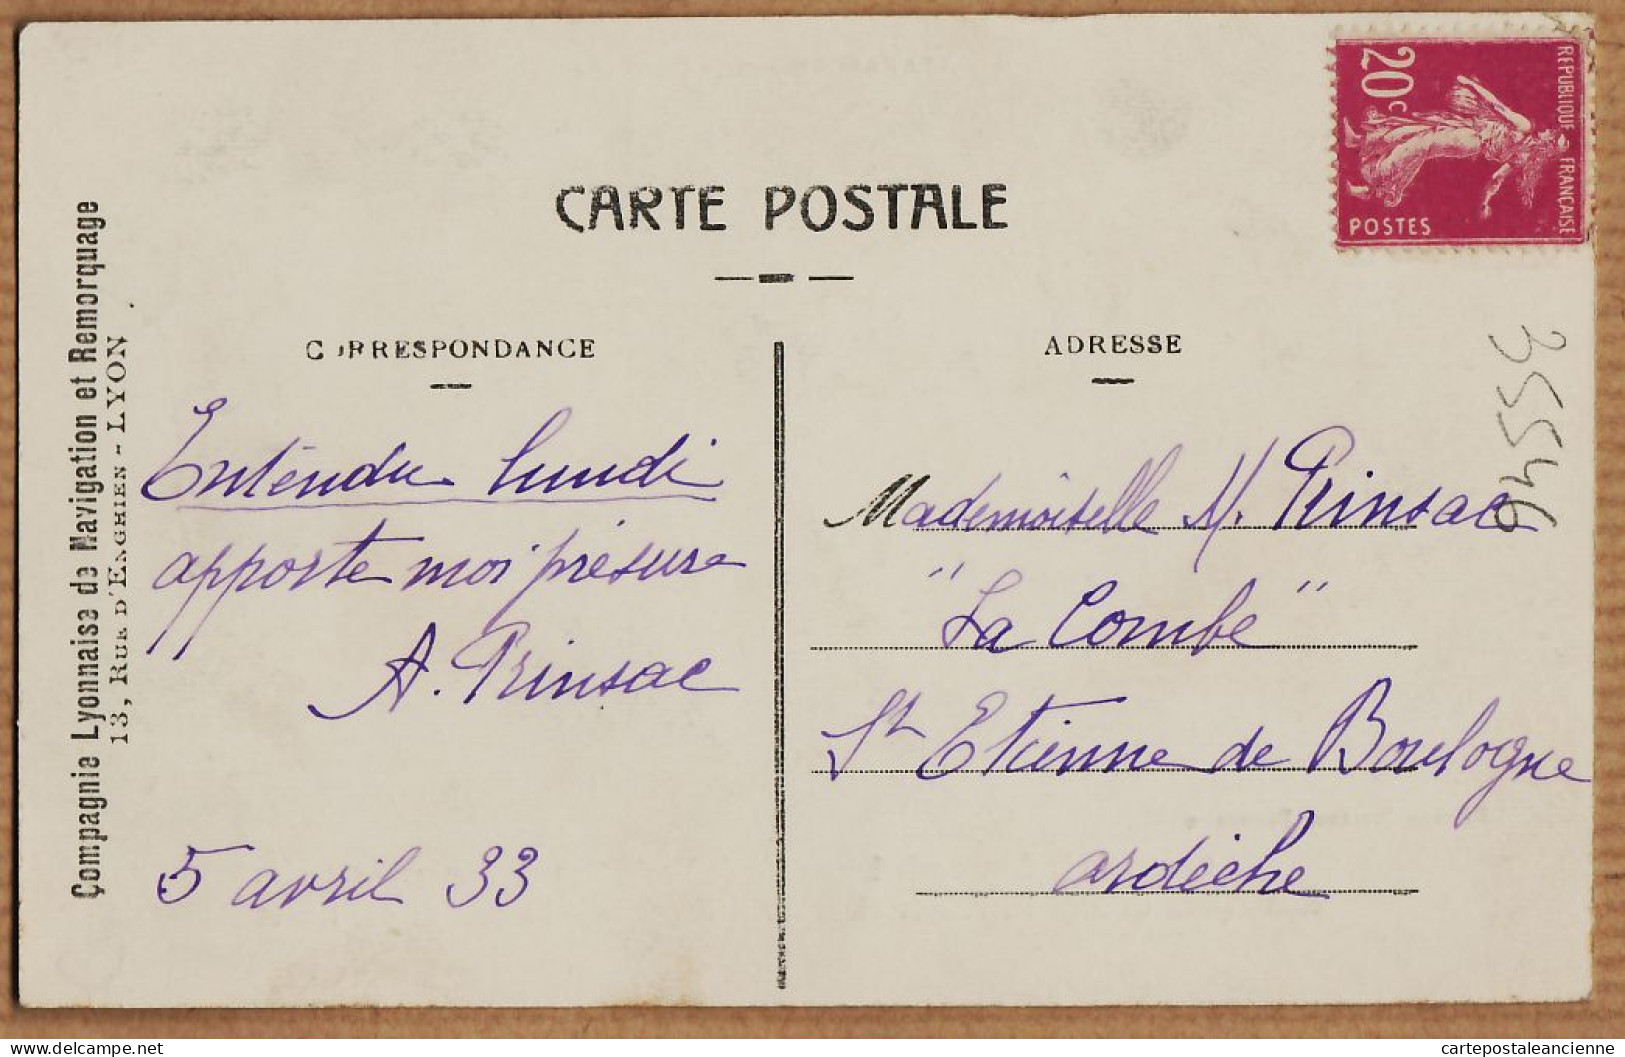 CARTE POSTALE
Compagnie Lyonnaise de Navigation et Remorquage
13, RUE D'ENGHIEN - LYON
CORRESPONDANCE
Entendu lundi
apporte moi présure
A. Prinsac
5 avril 33
REPUBLIQUE FRANÇAISE
20c
POSTES
ADRESSE
Mademoiselle M. Prinsac
"La Combe"
St Etienne de Boulogne
ardèche
35546
delcampe.net
cartepostaleancienne